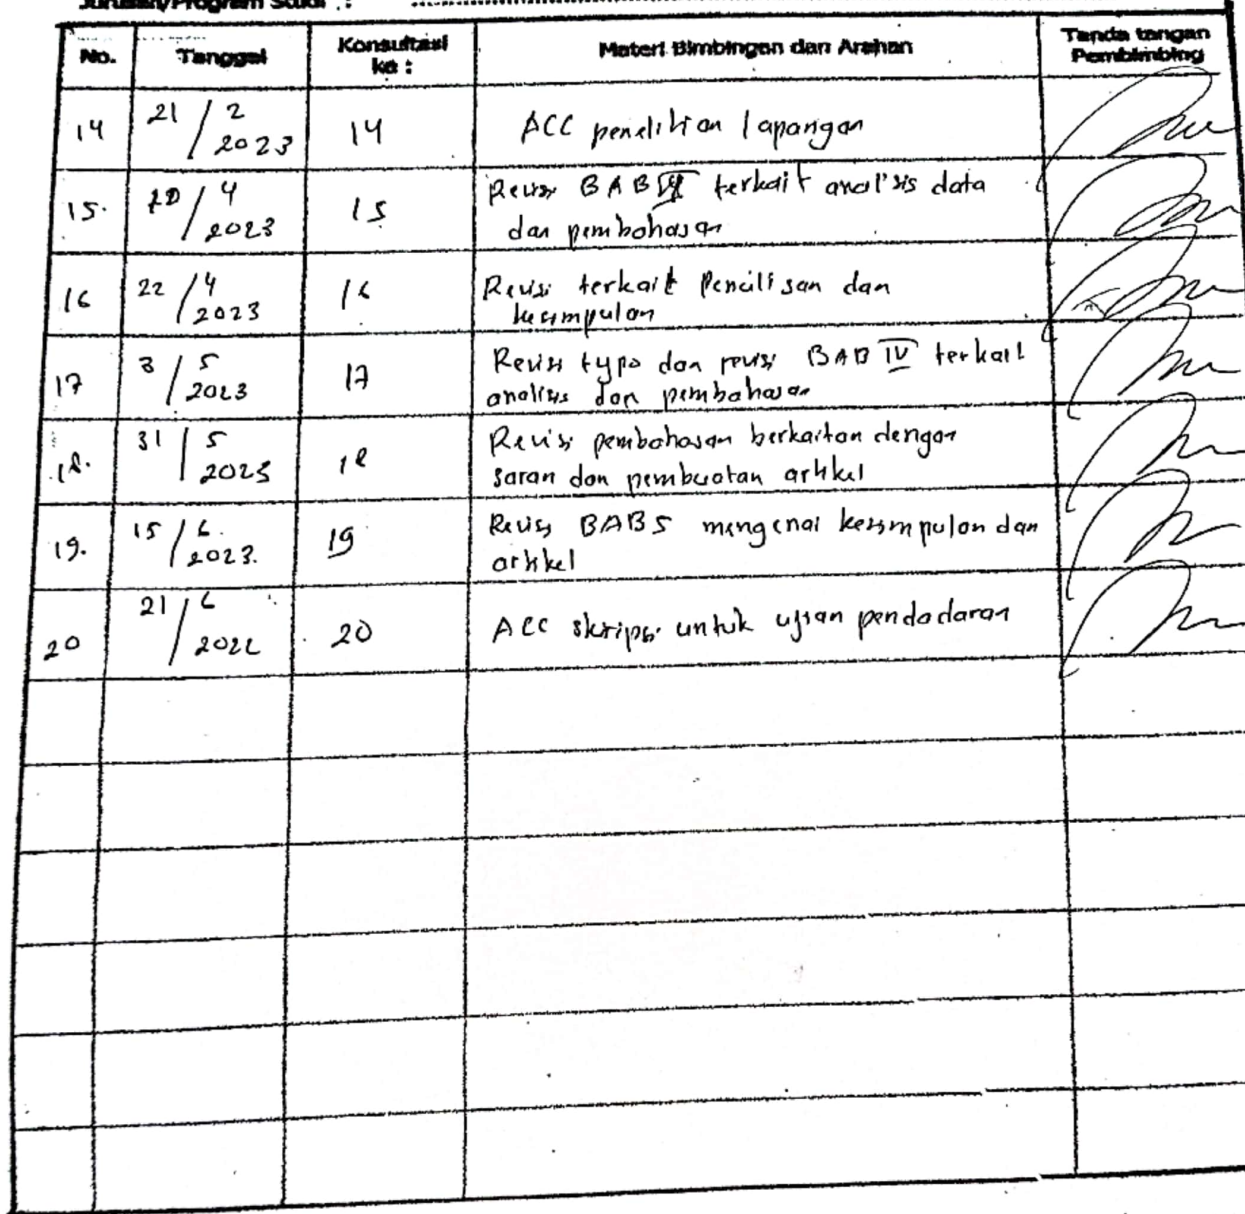 Jurusan/Program Studi :
No. Tanggal Konsultasi ke : Materi Bimbingan dan Arahan Tanda tangan Pembimbing
14 21/2 2023 14 ACC penelitian lapangan
15. 20/4 2023 15 Revisi BAB IV terkait analisis data
dan pembahasan
16 22/4 2023 16 Revisi terkait Penulisan dan
kesimpulan
17 3/5 2023 17 Revisi typo dan revisi BAB IV terkait
analisis dan pembahasan
18. 31/5 2023 18 Revisi pembahasan berkaitan dengan
saran dan pembuatan artikel
19. 15/6 2023. 19 Revisi BAB 5 mengenai kesimpulan dan
artikel
20 21/6 2022 20 ACC skripsi untuk ujian pendadaran